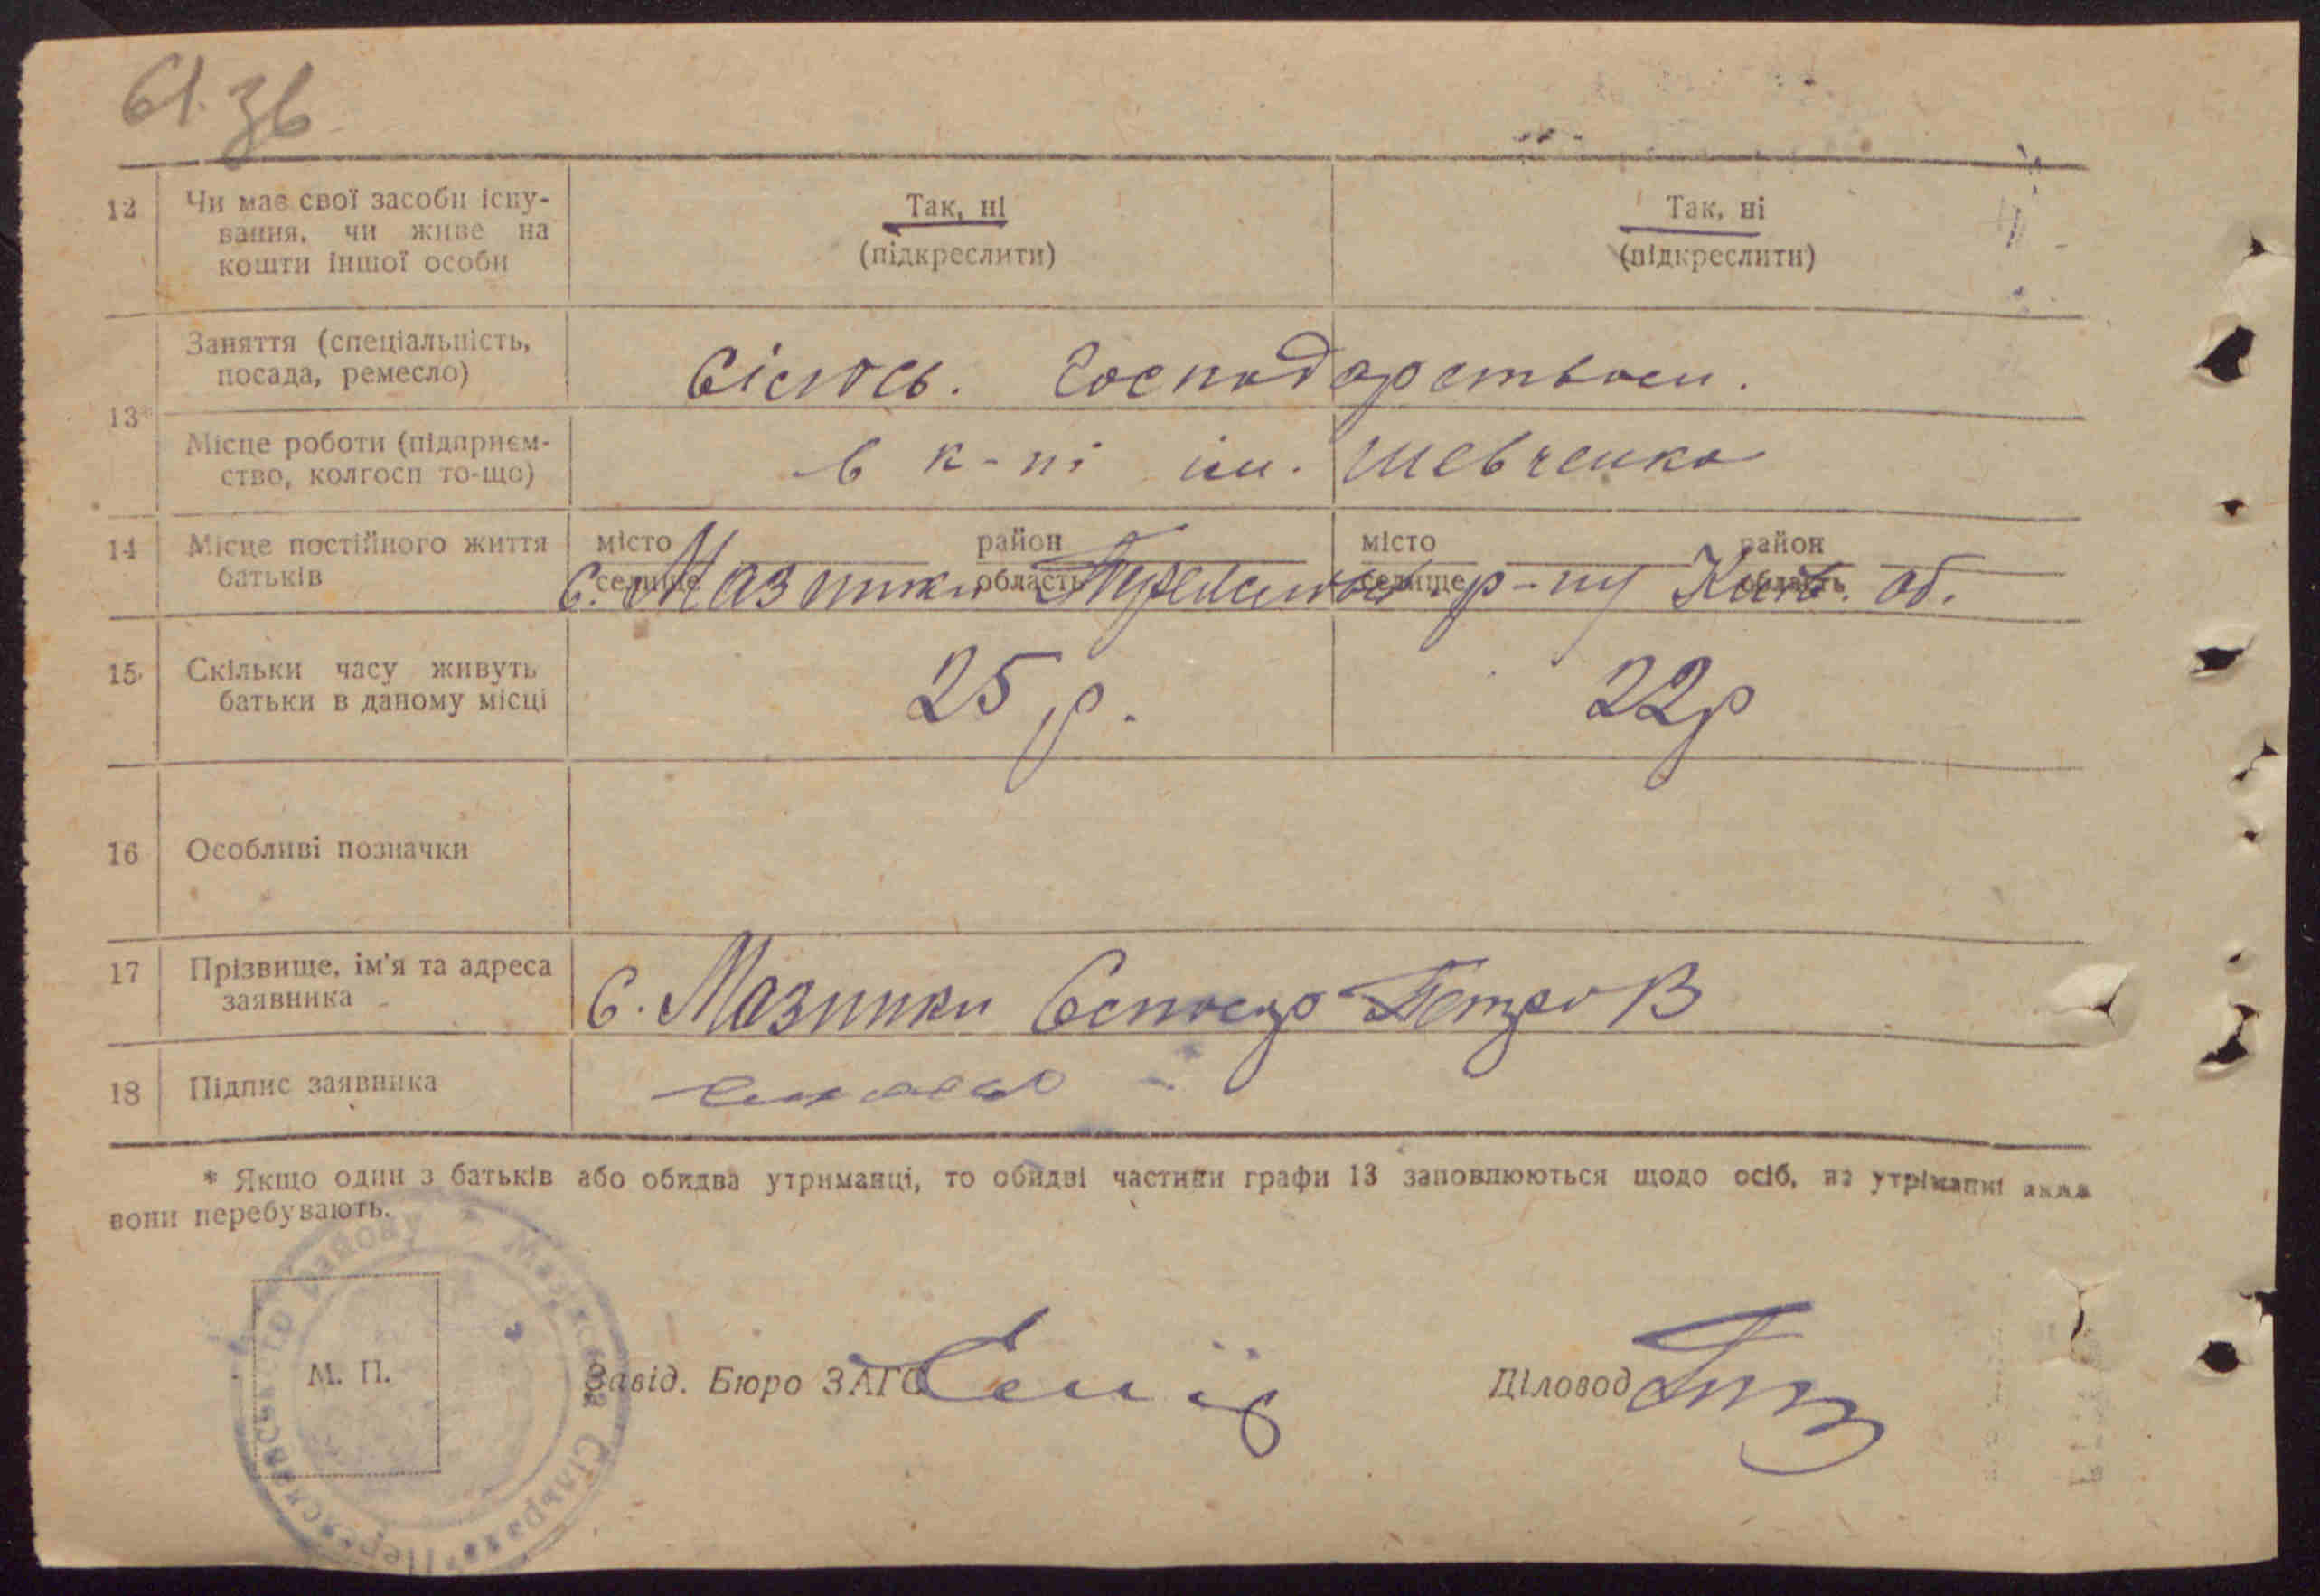 61.зв
12 Чи має свої засоби існу-
вання, чи живе на
кошти іншої особи
Так, ні
(підкреслити)
Так, ні
(підкреслити)
13*
Заняття (спеціальність,
посада, ремесло)
Сільсь. Господарством.
Місце роботи (підприєм-
ство, колгосп то-що)
в к-пі ім. Шевченка
14 Місце постійного життя
батьків
місто район місто район
селище область селище область
с. Мазинки р-ну Київ. об.
15 Скільки часу живуть
батьки в даному місці
25 р.
22р
16 Особливі позначки
17 Прізвище, ім'я та адреса
заявника
с. Мазинки Петро В
18 Підпис заявника
* Якщо один з батьків або обидва утриманці, то обидві частини графи 13 заповнюються щодо осіб, на утріманні яких
вони перебувають.
М. П.
Завід. Бюро ЗАГС
Діловод
Сільрада Переяславського району